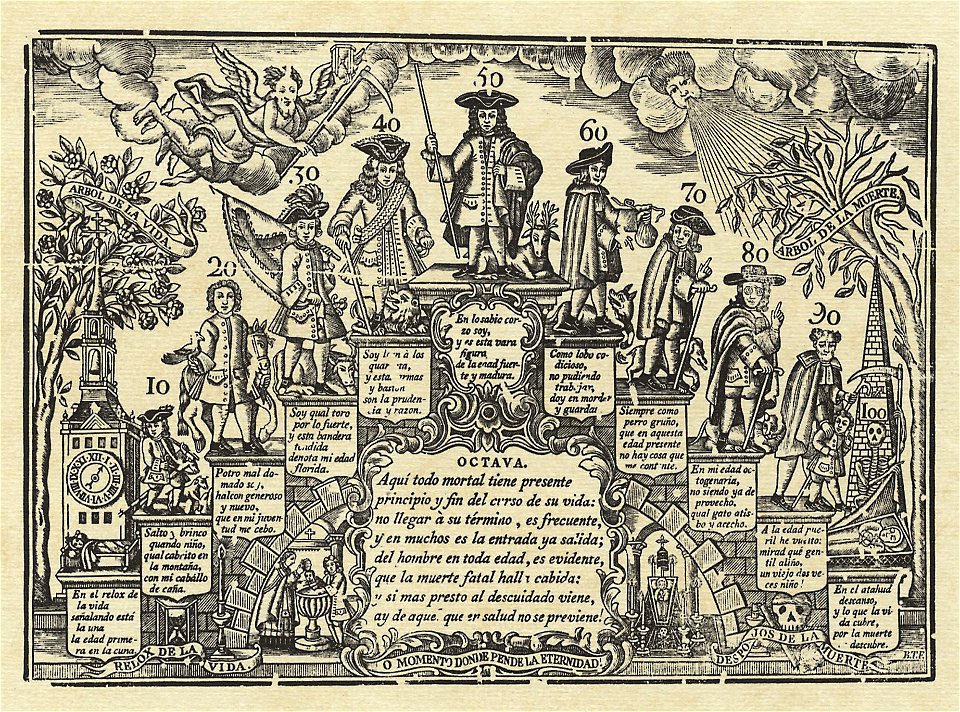 50
40
60
30
70
ARBOL DE LA VIDA.
ARBOL DE LA MUERTE.
20
80
90
10
100
En lo sabio cor-
zo soy,
y es esta vara
figura
de la edad fuer-
te y madura.
Soy leon à los
y esta armas
y baston
son la pruden-
cia y razon.
Como lobo co-
dicioso,
no pudiendo
trabajar,
doy en morder
y guardar
Soy qual toro
por lo fuerte,
y esta bandera
tendida
denota mi edad
florida.
Siempre como
perro gruño,
que en aquesta
edad presente
no hay cosa que
me contente.
Potro mal do-
mado soy,
halcon generoso
y nuevo,
que en mi juven-
tud me cebo.
En mi edad oc-
togenaria,
no siendo ya de
provecho,
qual gato atis-
bo y acecho.
Salto y brinco
quando niño,
qual cabrito en
la montaña,
con mi caballo
de caña.
A la edad pue-
ril he vuelto:
mirad què gen-
til aliño,
un viejo dos ve-
ces niño!
En el relox de
la vida
señalando està
la una
la edad prime-
ra en la cuna.
En el atahud
descanso,
y lo que la vi-
da cubre,
por la muerte
descubre.
OCTAVA.
Aquí todo mortal tiene presente
principio y fin del curso de su vida:
no llegar à su término, es frecuente,
y en muchos es la entrada ya salida;
del hombre en toda edad, es evidente,
que la muerte fatal halla cabida:
y si mas presto al descuidado viene,
ay de aquel que en salud no se previene!
RELOX DE LA VIDA.
O MOMENTO DONDE PENDE LA ETERNIDAD!
DESPOJOS DE LA MUERTE
B.T.F.